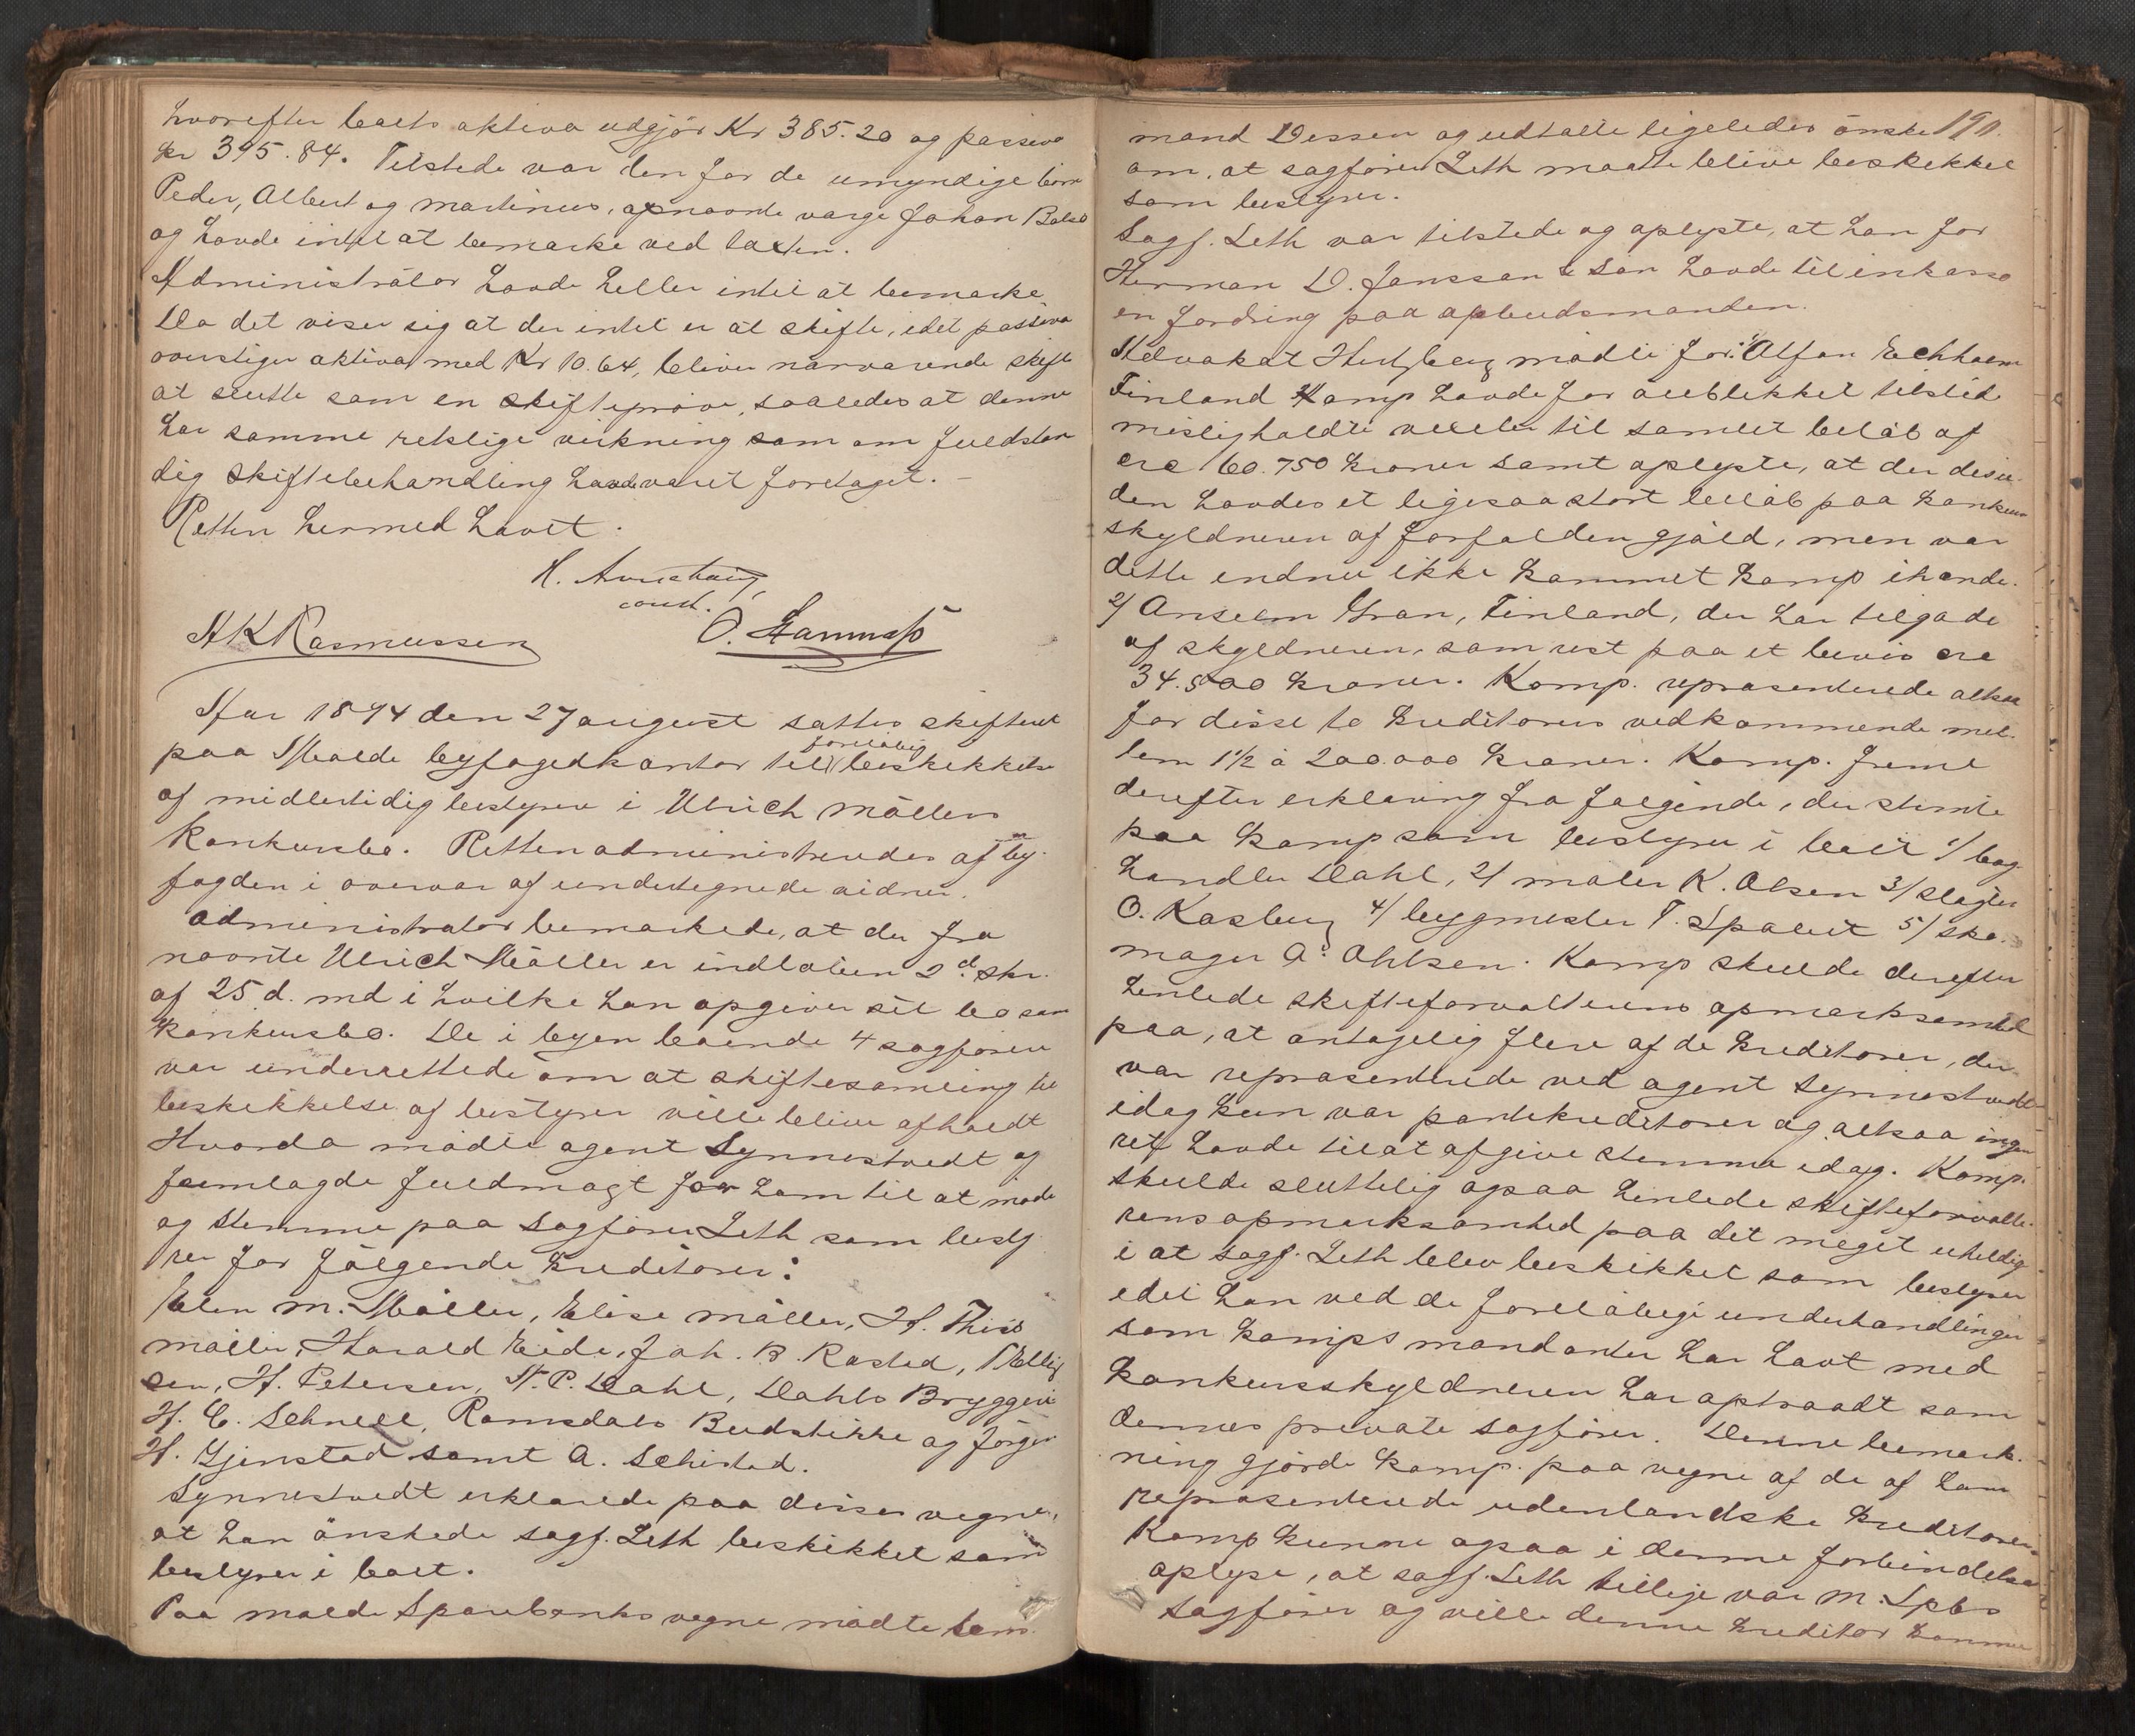 hvorefter boets aktiva udgjör Kr 385.20 og passiva
kr 395.84. Tilstede var den for de umyndige börn
Peder, Albert og Martinus, opnævnte værge Johan Bolsö
og havde intet at bemærke ved taxten.
Administrator havde heller intet at bemærke.
Da det viser sig at der intet er at skifte, idet passiva
overstiger aktiva med Kr 10.64, bliver nærværende skifte
at slutte som en skifteprøve, saaledes at denne
har samme retslige virkning som om fuldstæn
dig skiftebehandling havde været foretaget. –
Retten hermed hævet.
const.
A K Rasmussen
Aar 1894 den 27 august sattes skifteret
paa Molde byfogedkontor til foreløbig beskikkelse
af midlertidig bestyrer i Ulrich Möllers
konkursbo. Retten administreredes af by-
fogden i overvær af undertegnede vidner.
Administrator bemærkede, at der fra
nævnte Ulrich Möller er indløben 2de skr.
af 25 d. md i hvilke han opgiver sit bo som
konkursbo. De i byen boende 4 sagförere
var underrettede om at skiftesamling til
beskikkelse af bestyrer ville blive afholdt
Hvorda mödte agent Synnestvedt og
fremlagde fuldmagt for ham til at möde
og stemme paa Sagförer Leth som besty
rer for fölgende kreditorer:
Elen M. Möller, Elise Möller, H. Thiis
Möller, Harald Eide, Joh. B. Rasted,
sen, H. Petersen, N. P. Dahl, Dahls Bryggeri
H. C. Schnell, Romsdals Budstikke og Jörgen
H. Gjenstad samt A. Schistad.
Synnestvedt erklærede paa disses vegne,
at han önskede sagf. Leth beskikket som
bestyrer i boet.
Paa Molde Sparebanks vegne mödte lens
mand Dessen og udtalte ligeledes önske 190.
om, at sagförer Leth maatte blive beskikket
som bestyrer.
Sagf. Leth var tilstede og oplyste, at han for
Herman D. Janssan & Sön havde til inkasso
en fordring paa opbudsmanden.
Advokat Hertzberg mödte for: 1/ Alfon Eckholm
Finland Komp havde for öieblikket tilstede
misligholdte vexeler til samlet belöb af
cra 60.750 kroner samt oplyste, at der desu-
den havdes et ligesaa stort belöb paa konkurs
skyldneren af forfalden gjæld, men var
dette endnu ikke kommet komp ihænde.
2/ Anselm Gran, Finland, der har tilgode
af skyldneren, som rest paa et bevis cra
34.500 kroner. Komp. repræsenterede altsaa
for disse to kreditorers vedkommende mel-
lem 1½ à 200.000 kroner. Komp. freml
derefter erklæring fra fölgende, der stemte
paa komp som bestyrer i boet 1/ bog
handler Dahl, 2/ maler K. Olsen 3/ slagter
O. Kasberg 4/ bygmester T. Spolert 5/ sko-
mager A. Ohlsen. Komp skulde derefter
henlede skifteforvalterens opmærksomhed
paa, at antagelig flere af de kreditorer, der
var repræsenterede ved agent Synnestvedt
idag kun var pantekreditorer og altsaa ingen
ret havde til at afgive stemme idag. Komp.
skulde sluttelig ogsaa henlede skifteforvalte-
rens opmærksomhed paa det meget uheldige
i at sagf. Leth blev beskikket som bestyrer
idet han ved de foreløbige underhandlinger
som komps mandanter har havt med
konkursskyldneren har optraadt som
dennes private sagförer. Denne bemærk-
ning gjorde komp. paa vegne af de af ham
repræsenterede udenlandske kreditorer.
Komp kunne ogsaa i denne forbindelse
oplyse, at sagf. Leth tillige var M. Spbs
sagförer og ville denne kreditor komme